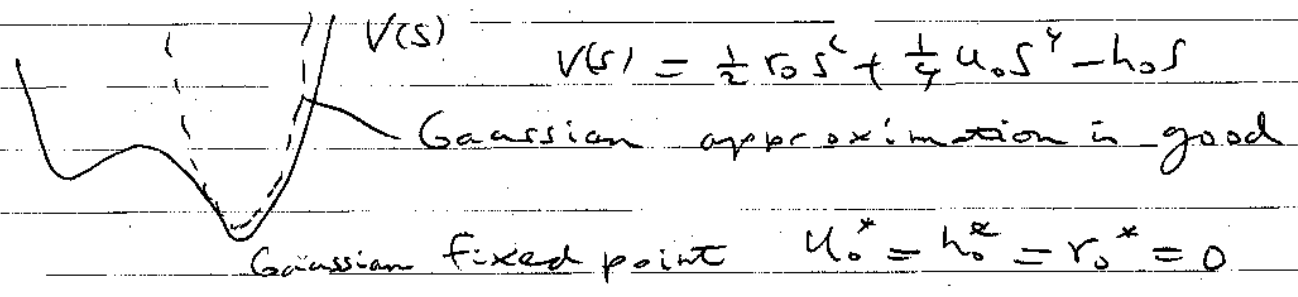 V(s)
V(s) = ½ r₀ s² + ¼ u₀ s⁴ - h₀ s
Gaussian approximation is good
Gaussian fixed point u₀* = h₀* = r₀* = 0